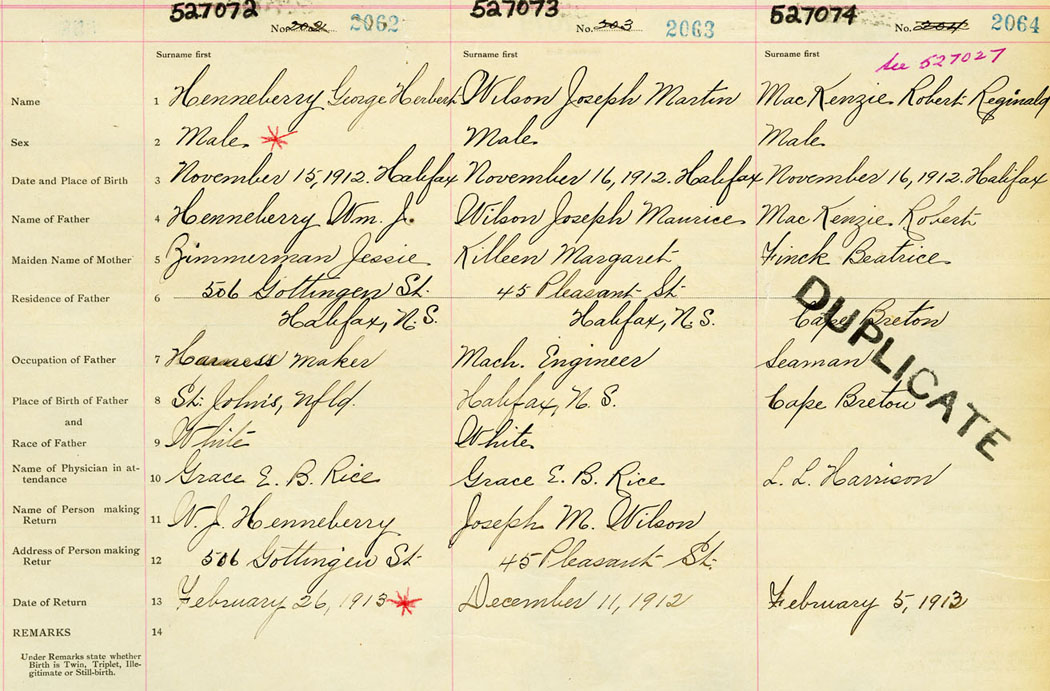 527072 527073 527074
No. 202 2062 No. 203 2063 No. 204 2064
Surname first Surname first Surname first
See 527027
Name 1 Henneberry George Herbert Wilson Joseph Martin MacKenzie Robert Reginald
Sex 2 Male Male Male
Date and Place of Birth 3 November 15, 1912. Halifax November 16, 1912. Halifax November 16, 1912. Halifax
Name of Father 4 Henneberry Wm. J. Wilson Joseph Maurice MacKenzie Robert
Maiden Name of Mother 5 Zimmerman Jessie Killeen Margaret Finck Beatrice
Residence of Father 6 506 Gottingen St. 45 Pleasant St.
Halifax, N.S. Halifax, N.S. Cape Breton
DUPLICATE
Occupation of Father 7 Harness maker Mach. Engineer Seaman
Place of Birth of Father 8 St. John's, Nfld. Halifax, N.S. Cape Breton
and
Race of Father 9 White White
Name of Physician in at-
tendance 10 Grace E. B. Rice Grace E. B. Rice L. L. Harrison
Name of Person making
Return 11 W. J. Henneberry Joseph M. Wilson
Address of Person making
Retur 12 506 Gottingen St. 45 Pleasant St.
Date of Return 13 February 26, 1913 December 11, 1912 February 5, 1913
REMARKS 14
Under Remarks state whether
Birth is Twin, Triplet, Ille-
gitimate or Still-birth.